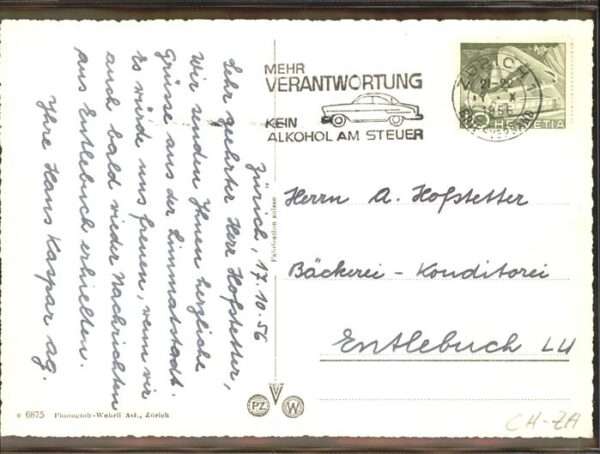 MEHR
VERANTWORTUNG
KEIN
ALKOHOL AM STEUER
ZÜRICH 1
HELVETIA
Zürich, 17.10.56
Sehr geehrter Herr Hofstetter,
Wir senden Ihnen herzliche
Grüsse aus der Limmatstadt.
Es würde uns freuen, wenn wir
auch bald wieder Nachrichten
aus Entlebuch erhielten.
Ihre Hans Kaspar AG.
Herrn A. Hofstetter
Bäckerei - Konditorei
Entlebuch LU
Fabrication suisse
PZ
W
6875 Photoglob-Wehrli AG., Zürich
CH-ZH